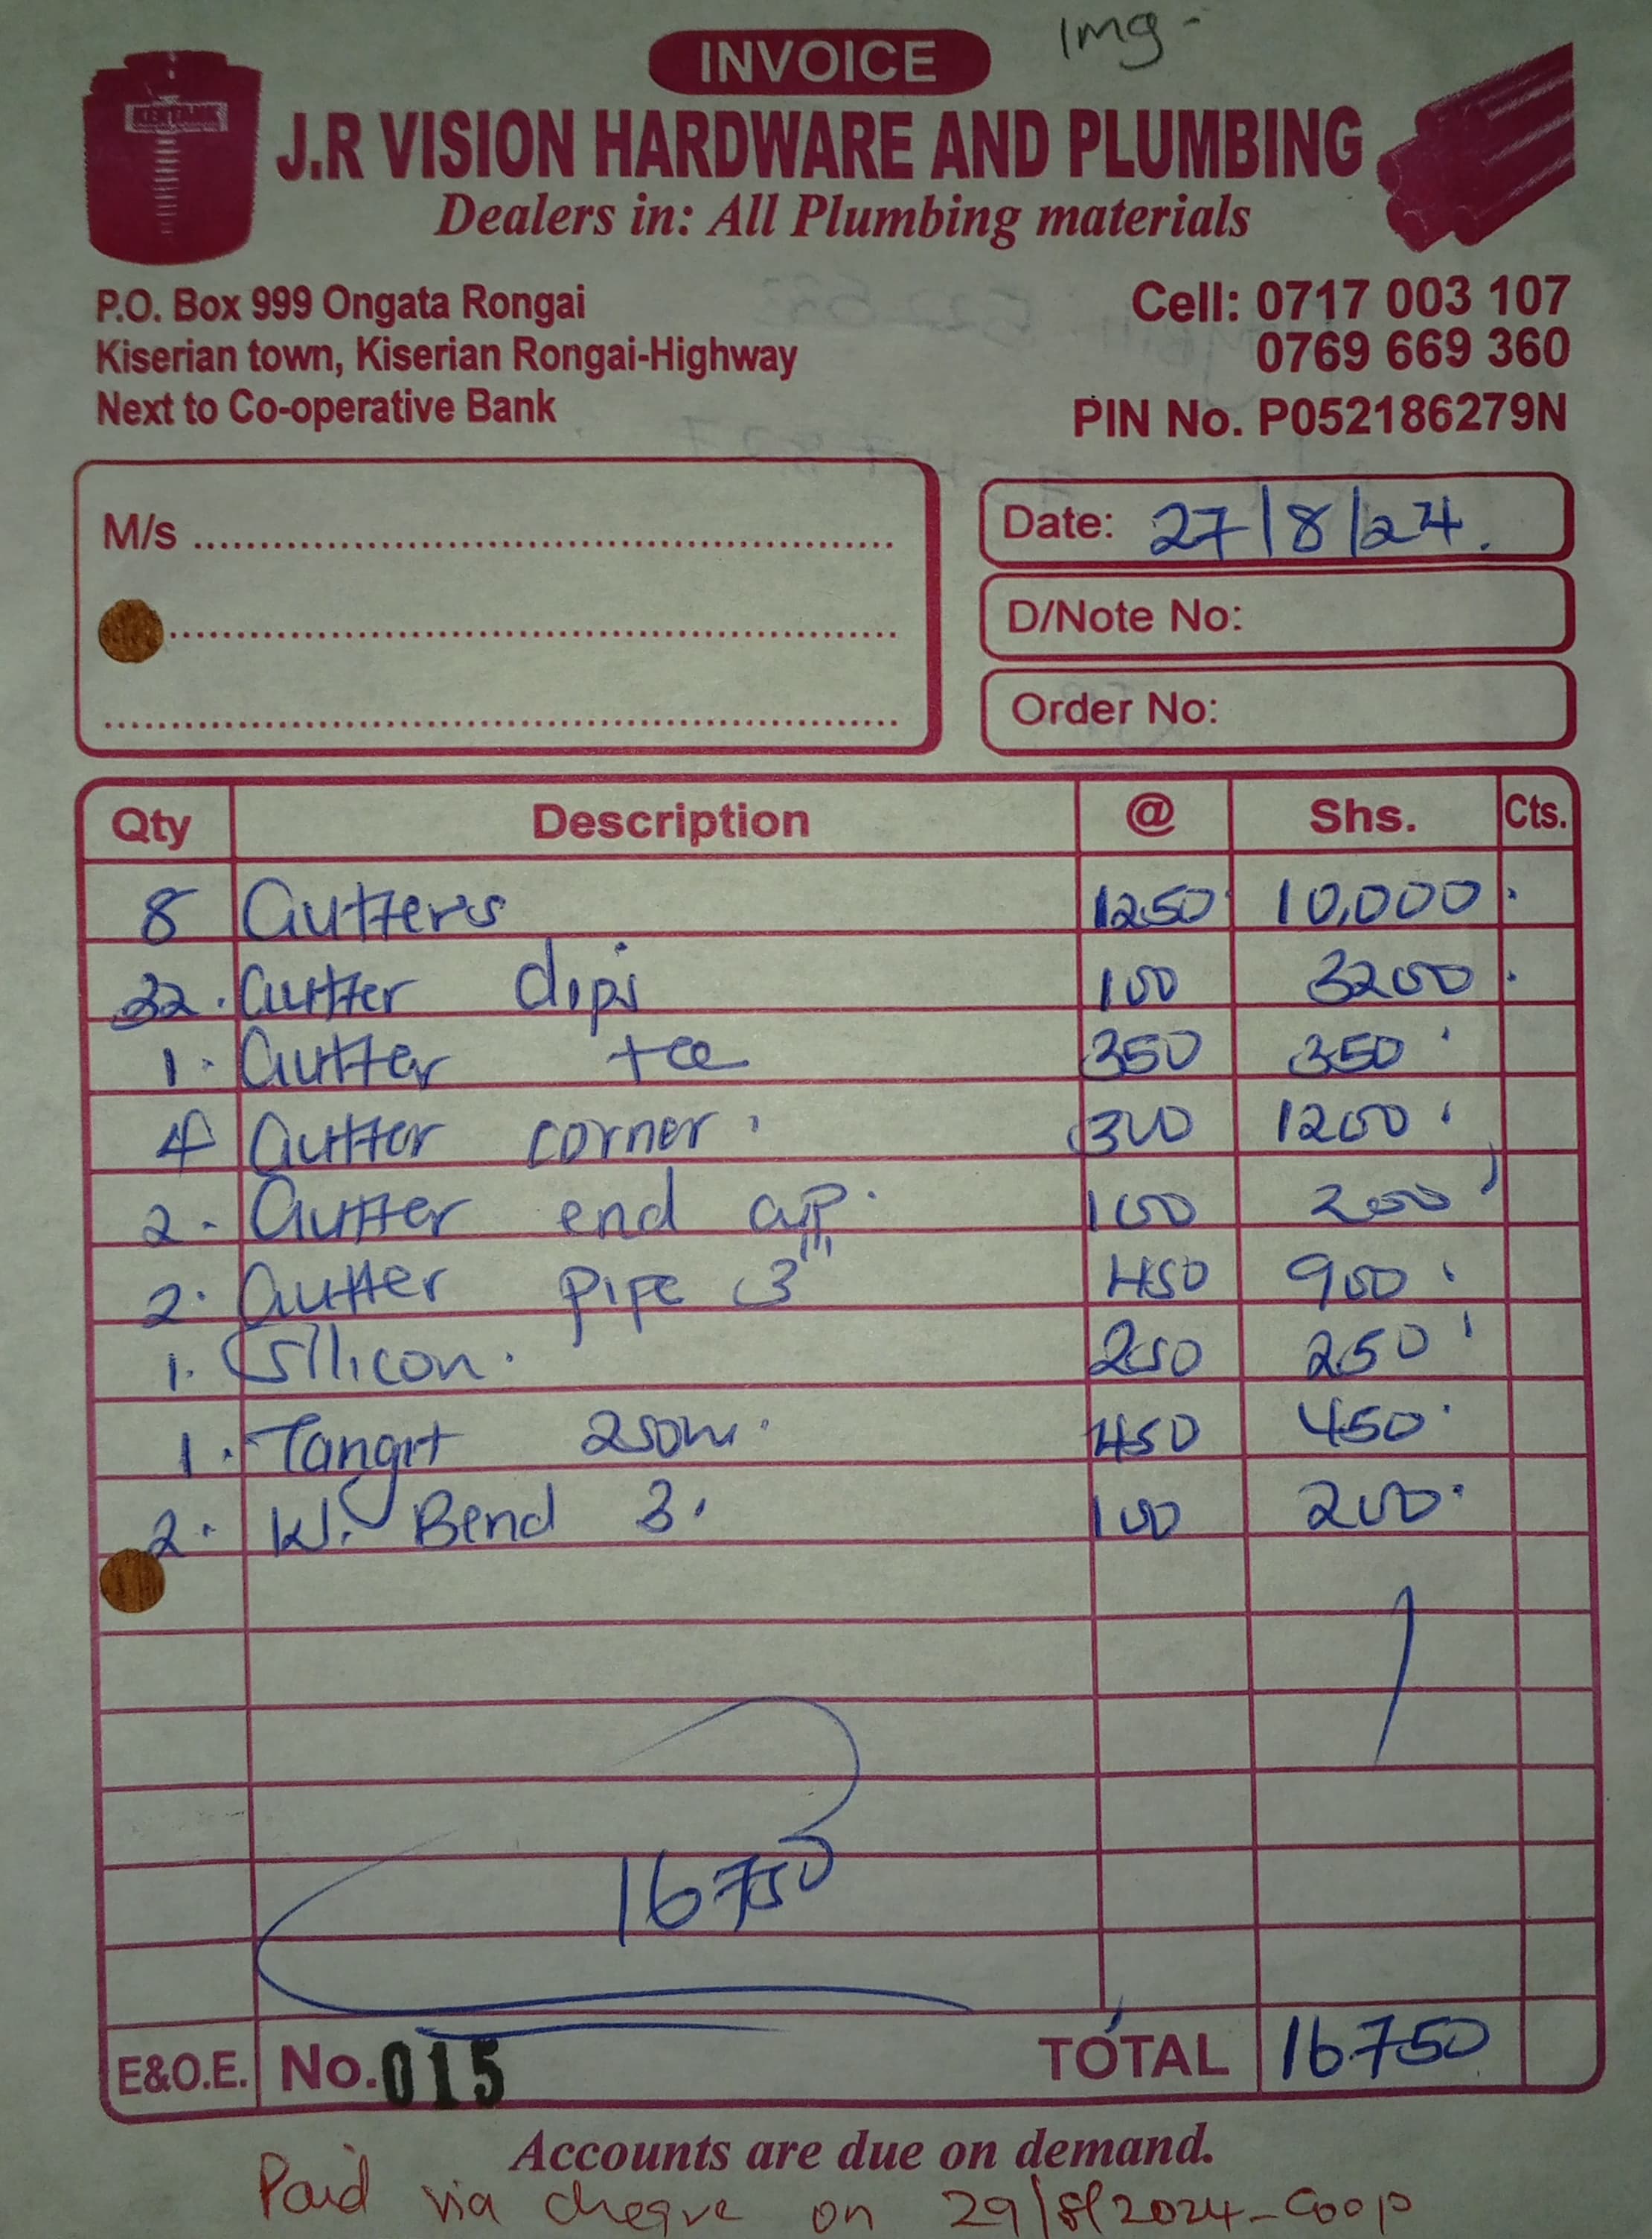 1mg -
INVOICE
KENTANK
J.R VISION HARDWARE AND PLUMBING
Dealers in: All Plumbing materials
P.O. Box 999 Ongata Rongai
Kiserian town, Kiserian Rongai-Highway
Next to Co-operative Bank
Cell: 0717 003 107
0769 669 360
PIN No. P052186279N
M/s
Date: 27/8/24.
D/Note No:
Order No:
Qty Description @ Shs. Cts.
8 Gutters 1250 10,000
32. Gutter clips 100 3200
1. Gutter tee 350 350
4 Gutter corner. 300 1200
2. Gutter end cap. 100 200
2. Gutter pipe 3" 450 900
1. Sillicon. 250 250
1. Tangit 250ml. 450 450
2. W. Bend 3. 100 200
16750
E&O.E. No. 015 TOTAL 16750
Accounts are due on demand.
Paid via cheque on 29/8/2024-Coop